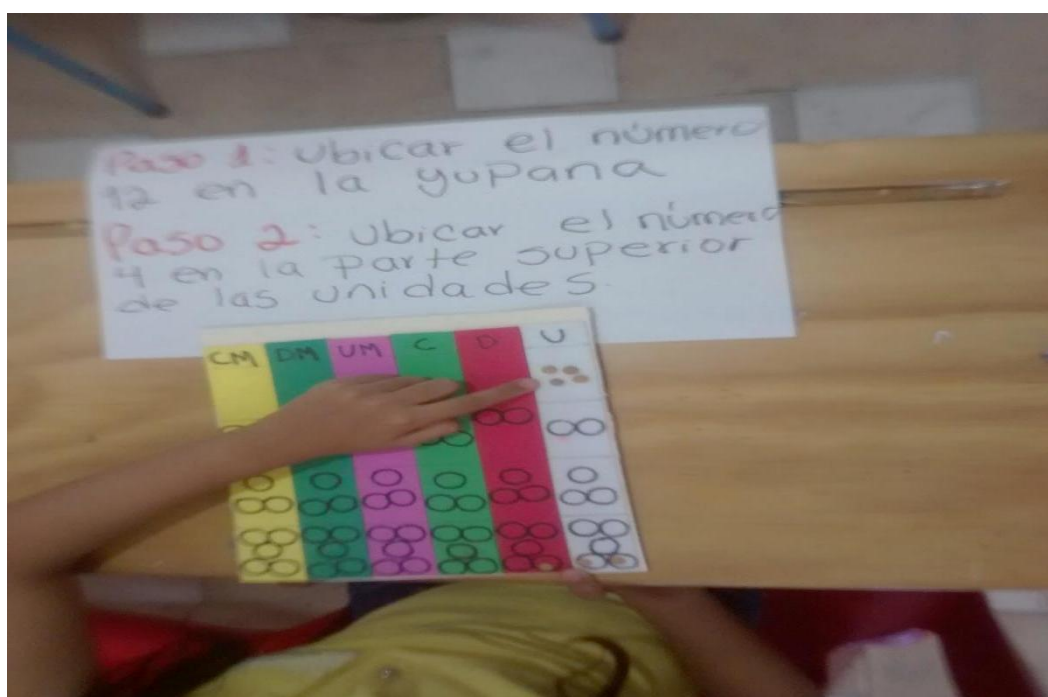 Paso 1: Ubicar el número
12 en la yupana
Paso 2: Ubicar el número
4 en la parte superior
de las unidades.
CM DM UM C D U